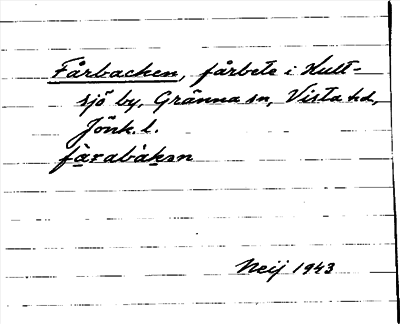 Fårbacken, fårbete i Hult-
sjö by, Gränna sn, Vista hd,
Jönk. l.
fårabakən
Neij 1943